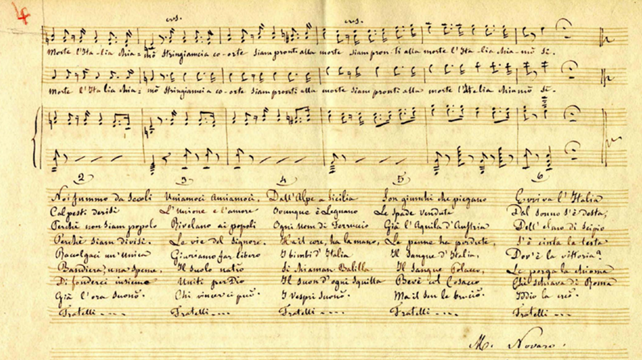 4
cres.
cres.
Morte l'Ita-lia chia=mò Stringiamci a co-orte siam pronti alla morte siam pron-ti alla morte l'Ita-lia chia-mò sì.
Morte l'Italia chia=mò Stringiamci a co-orte siam pronti alla morte siam pronti alla morte l'Italia chiamò sì.
2
Noi fummo da secoli
Calpesti derisi
Perchè non siam popolo
Perchè siam divisi.
Raccolgaci un'Unica
Bandiera; una Speme.
Di fonderci insieme
Già l'ora suonò.
Fratelli ----
3
Uniamoci Amiamoci.
L'Unione e l'amore
Rivelano ai popoli
Le vie del signore.
Giuriamo far Libero
Il suolo natio
Uniti per Dio
Chi vincer ci può.
Fratelli ----
4
Dall'Alpe a Sicilia
Dovunque è Legnano
Ogni uom di Ferruccio
Ha il core, ha la mano,
I bimbi d'Italia
Si chiaman Balilla
Il suon d'ogni squilla
I Vespri suonò.
Fratelli ----
5
Son giunchi che piegano
Le spade vendute
Già l'Aquila d'Austria
Le penne ha perdute,
Il Sangue d'Italia,
Il Sangue Polacco,
Bevè col Cosacco
Ma il sen le bruciò.
Fratelli ----
6
Evviva l'Italia
Dal sonno s'è desta,
Dell'elmo di Scipio
S'è cinta la testa
Dov'è la vittoria?
Le porga la chioma
Chè schiava di Roma
Iddio la creò.
Fratelli ----
M. Novaro